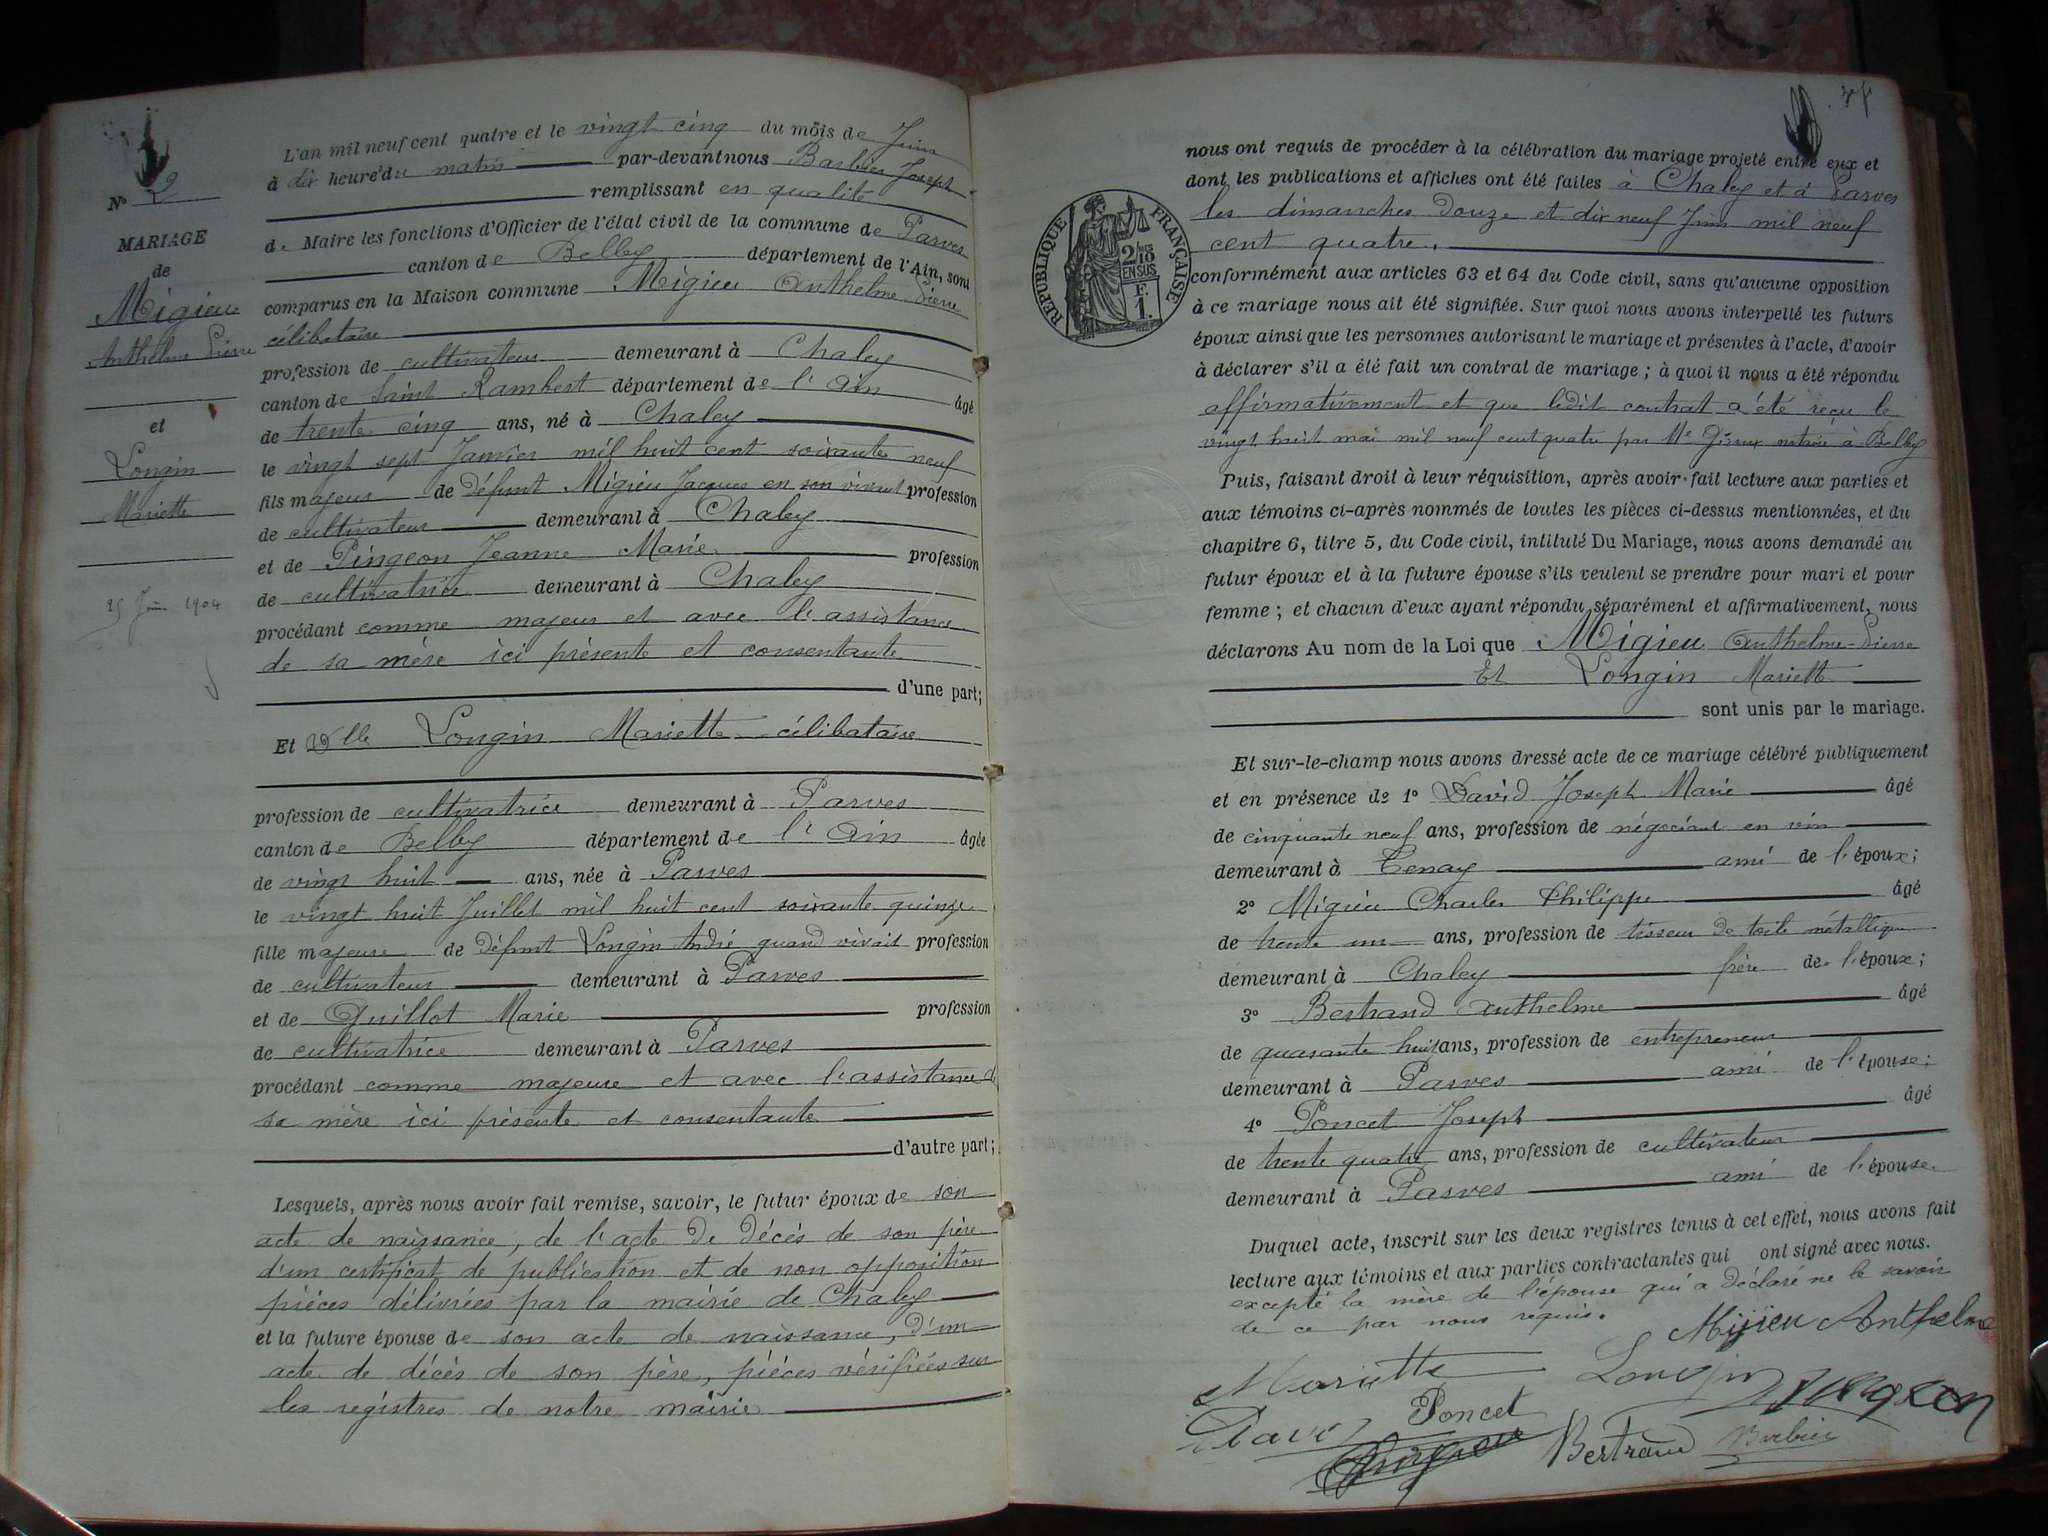 N° 2
MARIAGE
de
Migieu
Anthelme Pierre
et
Longin
Mariette
25 Juin 1904
L'an mil neuf cent quatre et le vingt cinq du mois de Juin
à dix heure du matin par-devant nous Barbier Joseph
remplissant en qualité
de Maire les fonctions d'Officier de l'état civil de la commune de Parves
canton de Belley département de l'Ain, sont
comparus en la Maison commune Migieu Anthelme Pierre
célibataire
profession de cultivateur demeurant à Chaley
canton de Saint Rambert département de l'Ain âgé
de trente cinq ans, né à Chaley
le vingt sept Janvier mil huit cent soixante neuf
fils majeur de défunt Migieu Jacques en son vivant profession
de cultivateur demeurant à Chaley
et de Pingeon Jeanne Marie profession
de cultivatrice demeurant à Chaley
procédant comme majeur et avec l'assistance
de sa mère ici présente et consentante
d'une part;
Et Dlle Longin Mariette célibataire
profession de cultivatrice demeurant à Parves
canton de Belley département de l'Ain âgée
de vingt huit ans, née à Parves
le vingt huit Juillet mil huit cent soixante quinze
fille majeure de défunt Longin André quand vivait profession
de cultivateur demeurant à Parves
et de Guillot Marie profession
de cultivatrice demeurant à Parves
procédant comme majeure et avec l'assistance de
sa mère ici présente et consentante
d'autre part;
Lesquels, après nous avoir fait remise, savoir, le futur époux de son
acte de naissance, de l'acte de décès de son père
d'un certificat de publication et de non opposition
pièces délivrées par la mairie de Chaley
et la future épouse de son acte de naissance, d'un
acte de décès de son père, pièces vérifiées sur
les registres de notre mairie
nous ont requis de procéder à la célébration du mariage projeté entre eux et
dont les publications et affiches ont été faites à Chaley et à Parves
les dimanches douze et dix neuf Juin mil neuf
cent quatre.
RÉPUBLIQUE FRANÇAISE
2/10 EN SUS
F. 1.
conformément aux articles 63 et 64 du Code civil, sans qu'aucune opposition
à ce mariage nous ait été signifiée. Sur quoi nous avons interpellé les futurs
époux ainsi que les personnes autorisant le mariage et présentes à l'acte, d'avoir
à déclarer s'il a été fait un contrat de mariage; à quoi il nous a été répondu
affirmativement et que ledit contrat a été reçu le
vingt huit mai mil neuf cent quatre par Me notaire à Belley
Puis, faisant droit à leur réquisition, après avoir fait lecture aux parties et
aux témoins ci-après nommés de toutes les pièces ci-dessus mentionnées, et du
chapitre 6, titre 5, du Code civil, intitulé Du Mariage, nous avons demandé au
futur époux et à la future épouse s'ils veulent se prendre pour mari et pour
femme; et chacun d'eux ayant répondu séparément et affirmativement, nous
déclarons Au nom de la Loi que Migieu Anthelme-Pierre
Et Longin Mariette
sont unis par le mariage.
Et sur-le-champ nous avons dressé acte de ce mariage célébré publiquement
et en présence de 1° David Joseph Marie âgé
de cinquante neuf ans, profession de négociant en vin
demeurant à Tenay ami de l'époux;
2° Migieu Charles Philippe âgé
de trente un ans, profession de tisseur de toile métallique
demeurant à Chaley frère de l'époux;
3° Bertrand Anthelme âgé
de quarante huit ans, profession de entrepreneur
demeurant à Parves ami de l'épouse;
4° Poncet Joseph âgé
de trente quatre ans, profession de cultivateur
demeurant à Parves ami de l'épouse
Duquel acte, inscrit sur les deux registres tenus à cet effet, nous avons fait
lecture aux témoins et aux parties contractantes qui ont signé avec nous.
excepté la mère de l'épouse qui a déclaré ne le savoir
de ce par nous requis.
Mijieu Anthelme
Mariette Longin Pingeon
David Poncet
Bertrand Barbier